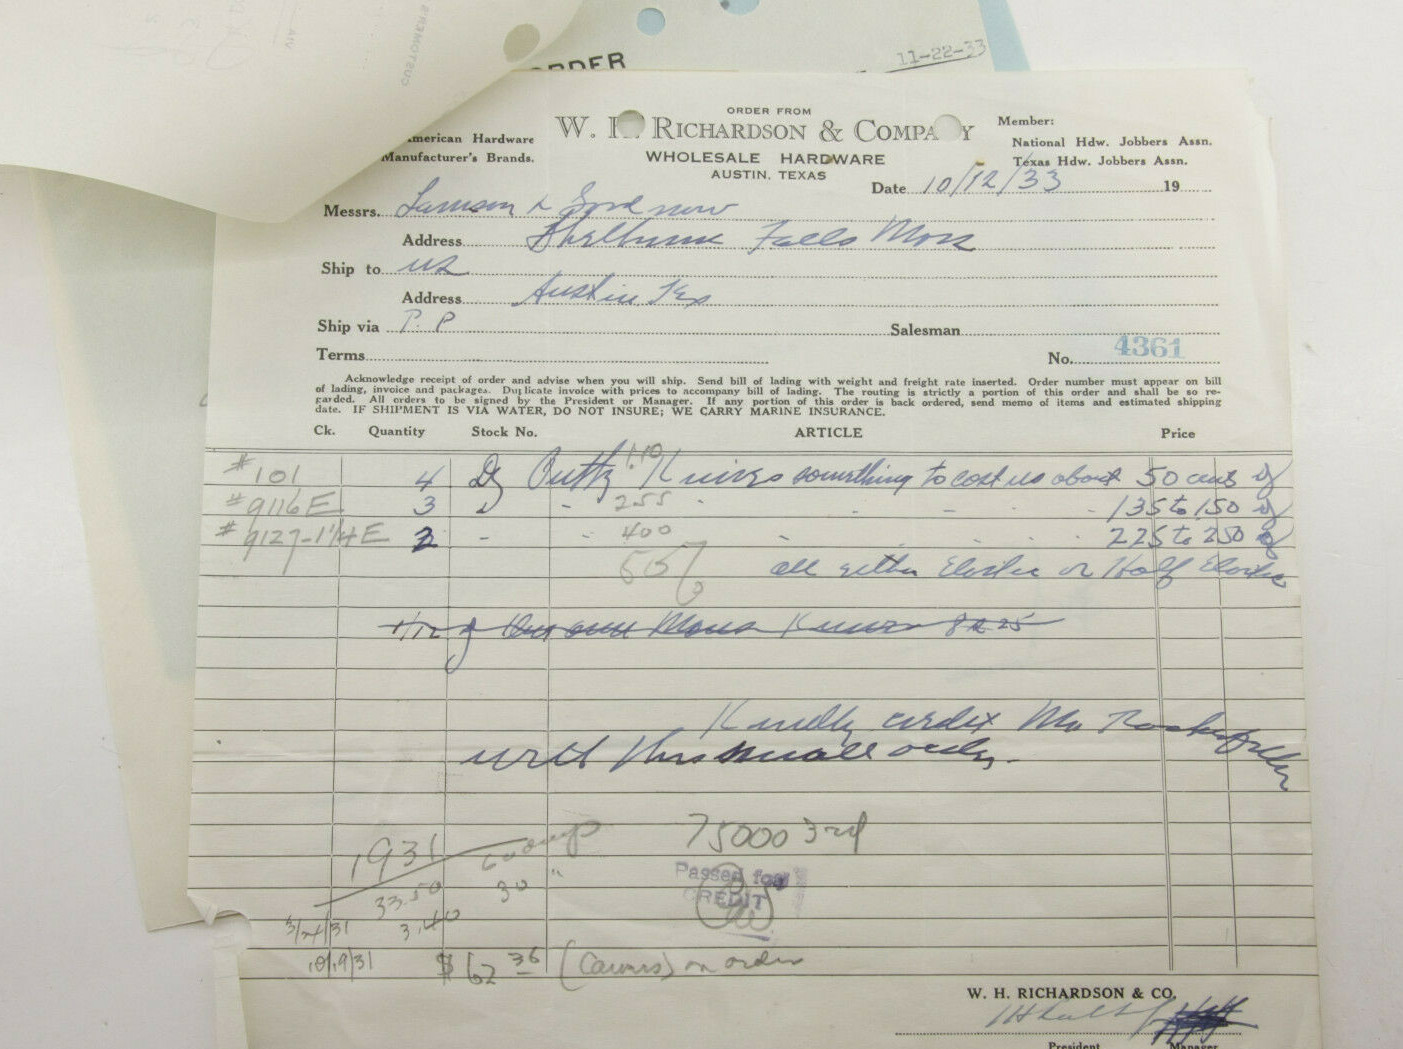 CUSTOMER'S
VIA
ORDER
11-22-33
ORDER FROM
W. H. RICHARDSON & COMPANY
WHOLESALE HARDWARE
AUSTIN, TEXAS
American Hardware
Manufacturer's Brands.
Member:
National Hdw. Jobbers Assn.
Texas Hdw. Jobbers Assn.
Date 10/12/33 19
Messrs. Lamson & Goodnow
Address Shelburne Falls Mass
Ship to us
Address Austin Tex
Ship via P. P
Salesman
Terms
No. 4361
Acknowledge receipt of order and advise when you will ship. Send bill of lading with weight and freight rate inserted. Order number must appear on bill
of lading, invoice and packages. Duplicate invoice with prices to accompany bill of lading. The routing is strictly a portion of this order and shall be so re-
garded. All orders to be signed by the President or Manager. If any portion of this order is back ordered, send memo of items and estimated shipping
date. IF SHIPMENT IS VIA WATER, DO NOT INSURE; WE CARRY MARINE INSURANCE.
Ck. Quantity Stock No. ARTICLE Price
#101 4 Dz Putty 1.10 Knives something to cost us about 50 cents dz
#9116E 3 " - 255 - - - - 135 to 150 dz
#9127-1 1/4 E 2 - - 400 - - - 225 to 250 dz
50% all either Elastic or Half Elastic
1/12 Knives
Kindly credit Mr Rockefeller
with this small order.
1931 75000 3rd
33.50 30 "
Passed for
CREDIT
3/24/31 3.40
10/19/31 $62 36 (Carvers) on order
W. H. RICHARDSON & CO.
President Manager